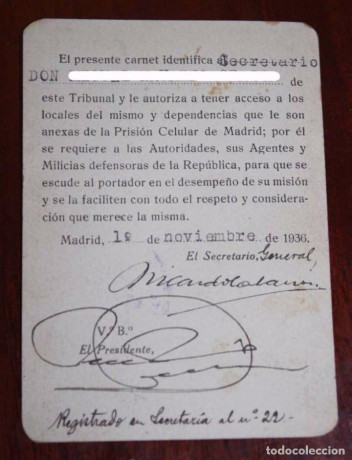 El presente carnet identifica Secretario
DON de
este Tribunal y le autoriza a tener acceso a los
locales del mismo y dependencias que le son
anexas de la Prisión Celular de Madrid; por él
se requiere a las Autoridades, sus Agentes y
Milicias defensoras de la República, para que se
escude al portador en el desempeño de su misión
y se la faciliten con todo el respeto y considera-
ción que merece la misma.
Madrid, 1º de noviembre de 1936.
El Secretario, General,
V.º B.º
El Presidente,
Registrado en Secretaría al nº 22-
todocoleccion